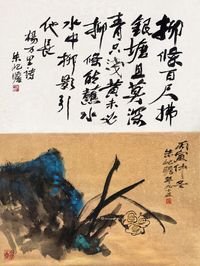 柳條百尺拂
銀塘且莫深
青只淺黃未必
柳條能蘸水
水中柳影引
他長
楊万里詩
朱屺瞻
朱屺瞻